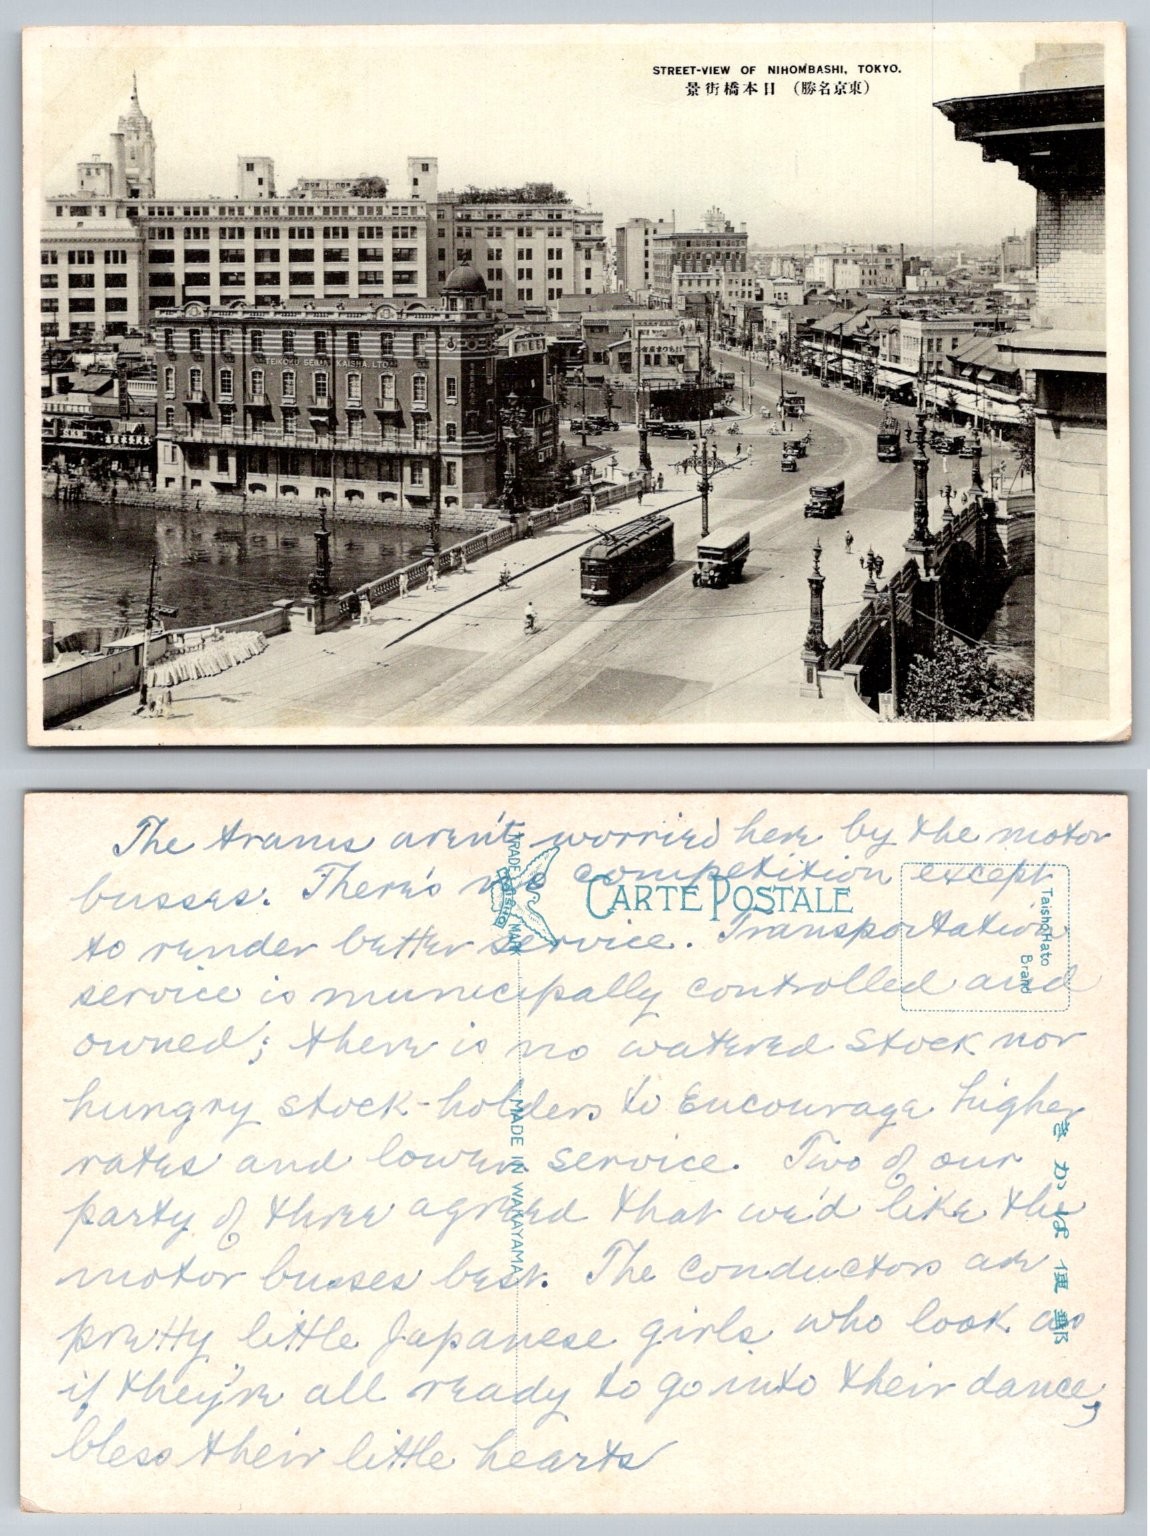 STREET-VIEW OF NIHOMBASHI, TOKYO.
景街橋本日 (勝名京東)
TEIKOKU SEIMA KAISHA. LTD
The trams aren't worried here by the motor
busses. There's no competition except
to render better service. Transportation
service is municipally controlled and
owned; there is no watered stock nor
hungry stock-holders to encourage higher
rates and lower service. Two of our
party of three agreed that we'd like the
motor busses best. The conductors are
pretty little Japanese girls who look as
if they're all ready to go into their dance,
bless their little hearts
CARTE POSTALE
TRADE MARK
TaishoHato
Brand
MADE IN WAKAYAMA
きかは便郵